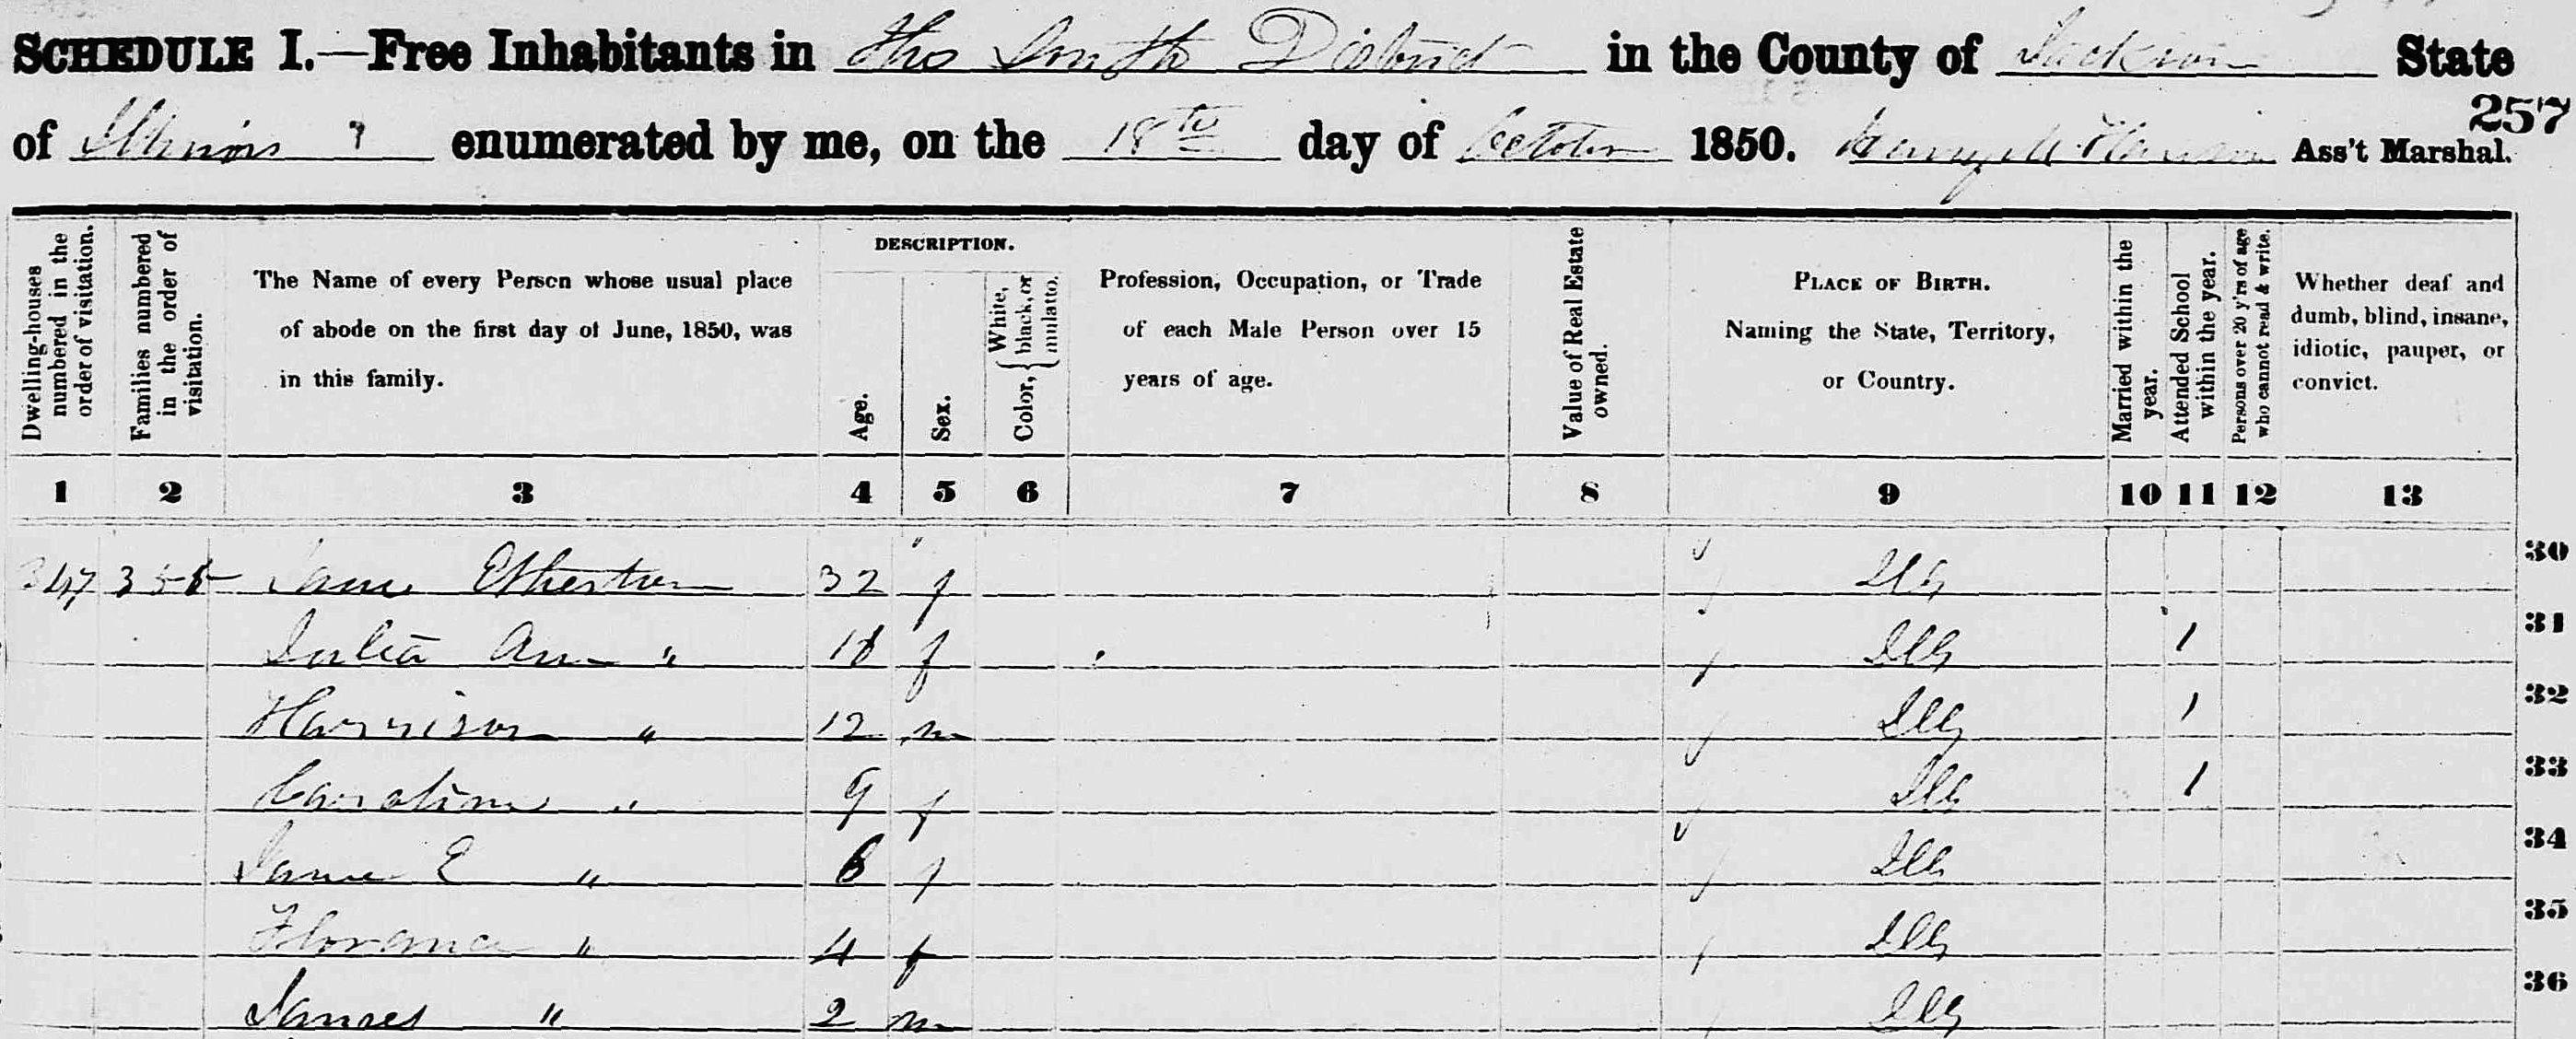 SCHEDULE I.—Free Inhabitants in The South District in the County of Jackson State
257
of Illinois enumerated by me, on the 18th day of October 1850. Ass't Marshal.
Dwelling-houses numbered in the order of visitation.
Families numbered in the order of visitation.
The Name of every Person whose usual place of abode on the first day of June, 1850, was in this family.
DESCRIPTION.
Age.
Sex.
Color, { White, black, or mulatto.
Profession, Occupation, or Trade of each Male Person over 15 years of age.
Value of Real Estate owned.
PLACE OF BIRTH. Naming the State, Territory, or Country.
Married within the year.
Attended School within the year.
Persons over 20 y'rs of age who cannot read & write.
Whether deaf and dumb, blind, insane, idiotic, pauper, or convict.
1 2 3 4 5 6 7 8 9 10 11 12 13
347 355 Jane Etherton 32 f Ills 30
Julia Ann " f Ills 1 31
Harrison " 12 m Ills 1 32
Caroline " 9 f Ills 1 33
Jane E " 6 f Ills 34
Florance " 4 f Ills 35
James " 2 m Ills 36